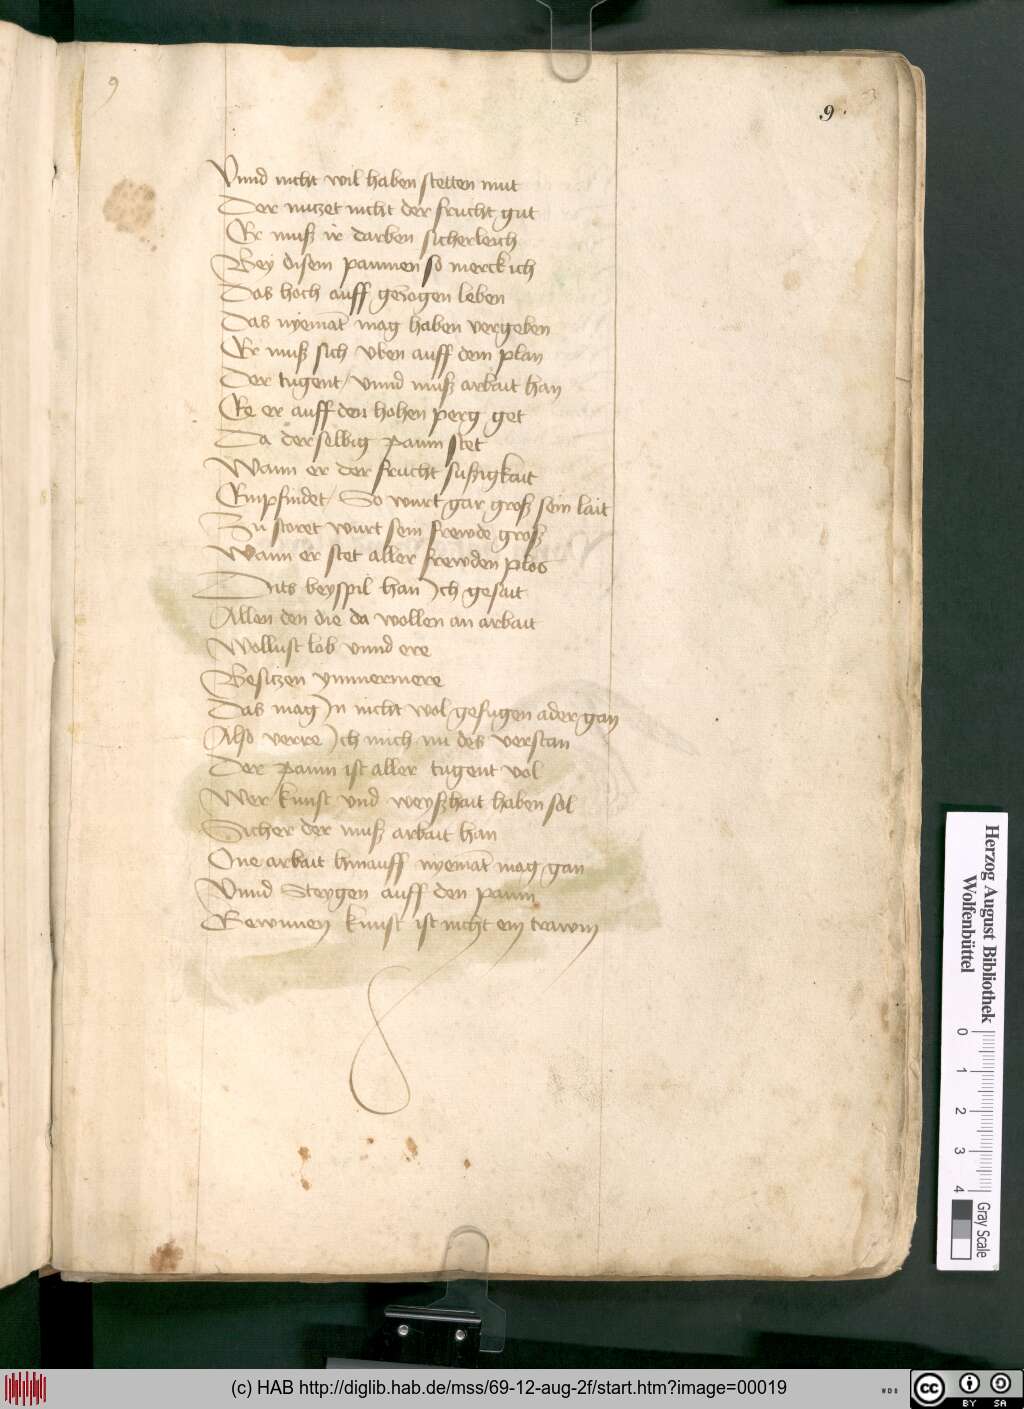 9
9.
Vnnd nicht wil haben stetten mut
Der nutzet nicht der frucht gut
Er muß ir darben sicherleich
Bey disem paumen so merck ich
Das hoch auff gezogen leben
Das nyemāt mag haben vergeben
Er muß sich vben auff dem plan
Der tugent / vnnd muß arbait han
Ee er auff den hohen perg get
Da derselbig paum stet
Wann er der frucht sußigkait
Empfindet / So wurt gar groß sein lait
Zu storet wurt sein frewde groß
Wann er stet aller frewden plos
Dits beyspil han Ich gesait
Allen den die da wollen an arbait
Wollust lob vnnd ere
Besitzen ymmermere
Das mag In nicht wol gefugen ader gan
Also verre Ich mich nu des verstan
Der paum ist aller tugent vol
Wer kunst vnd weyßhait haben sol
Sicher der muß arbait han
One arbait hinauff nyemāt mag gan
Vnnd Steygen auff den paum
Gewinnen kunst ist nicht ein trawm
Herzog August Bibliothek
Wolfenbüttel
0 1 2 3 4
Gray Scale
(c) HAB http://diglib.hab.de/mss/69-12-aug-2f/start.htm?image=00019
WDB
cc BY SA